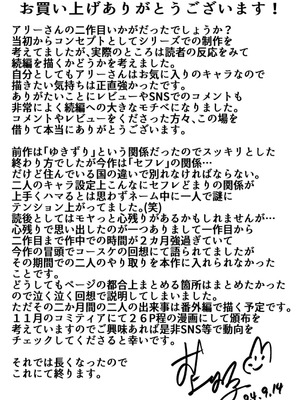 お買い上げありがとうございます！
アリーさんの二作目いかがだったでしょうか？
当初からコンセプトとしてシリーズでの制作を
考えてましたが、実際のところは読者の反応をみて
続編を描くかどうかを考えました。
自分としてもアリーさんはお気に入りのキャラなので
描きたい気持ちは正直強かったです。
ありがたいことにレビューやSNSでのコメントも
非常によく続編への大きなモチベになりました。
コメントやレビューをくださった方々、この場を
借りて本当にありがとうございます。
前作は「ゆきずり」という関係だったのでスッキリとした
終わり方でしたが今作は「セフレ」の関係…
だけど住んでいる国の違いで別れなければならない。
二人のキャラ設定上こんなにセフレどまりの関係が
上手くハマるとは思わずネーム中に一人で謎に
テンション上がってました。(笑)
読後としてはモヤっと心残りがあるかもしれませんが…
心残りで思い出したのが一つありまして一作目から
二作目まで作中での時間が２カ月強過ぎていて
今作の冒頭でコースケの回想にて語られてましたが
その期間での二人のやり取りを本作に入れられなかった
ことです。
どうしてもページの都合上まとめる箇所はまとめたかった
ので泣く泣く回想で説明してしまいました。
ただその二か月間の二人の出来事は番外編で描く予定です。
１１月のコミティアにて２６P程の漫画にして頒布を
考えていますのでご興味あれば是非SNS等で動向を
チェックしてくださると幸いです。
それでは長くなったので
これにて終ります。
'04.9.14